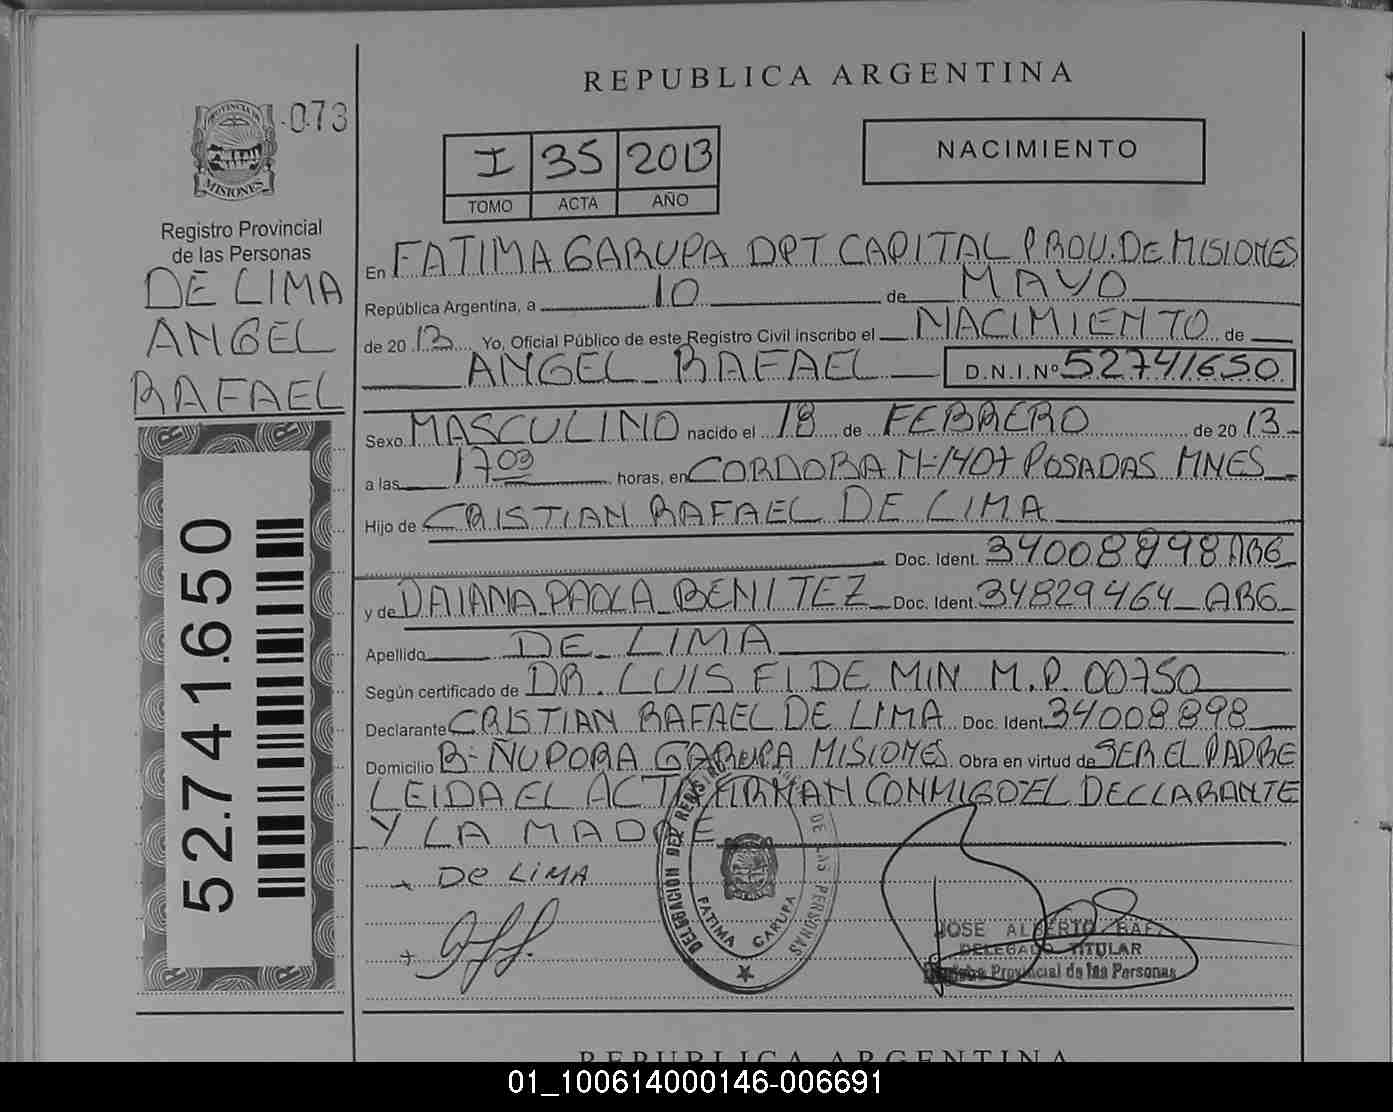 REPUBLICA ARGENTINA
PROVINCIA DE
MISIONES
073
Registro Provincial
de las Personas
DE LIMA
ANGEL
RAFAEL
52.741.650
I 35 2013
TOMO ACTA AÑO
NACIMIENTO
En FATIMA GARUPA DPT CAPITAL PROV. DE MISIONES
República Argentina, a 10 de MAYO
de 20 13 Yo, Oficial Público de este Registro Civil inscribo el NACIMIENTO de
ANGEL RAFAEL D.N.I.Nº 52741650
Sexo MASCULINO nacido el 18 de FEBRERO de 20 13
a las 17 03 horas, en CORDOBA N-1407 POSADAS MNES
Hijo de CRISTIAN RAFAEL DE LIMA
Doc. Ident. 34008898 ARG
y de DAIANA PAOLA BENITEZ Doc. Ident. 34829464 ARG
Apellido DE LIMA
Según certificado de DR. LUIS FIDE MIN M.P. 00750
Declarante CRISTIAN RAFAEL DE LIMA Doc. Ident. 34008898
Domicilio B- ÑU PORA GARUPA MISIONES Obra en virtud de SER EL PADRE
LEIDA EL ACTA FIRMAN CONMIGO EL DECLARANTE
Y LA MADRE
DE LIMA
DELEGACION DEL REGISTRO DE LAS PERSONAS
FATIMA GARUPA
JOSE ALBERTO
DELEGADO TITULAR
Registro Provincial de las Personas
REPUBLICA ARGENTINA
01_100614000146-006691